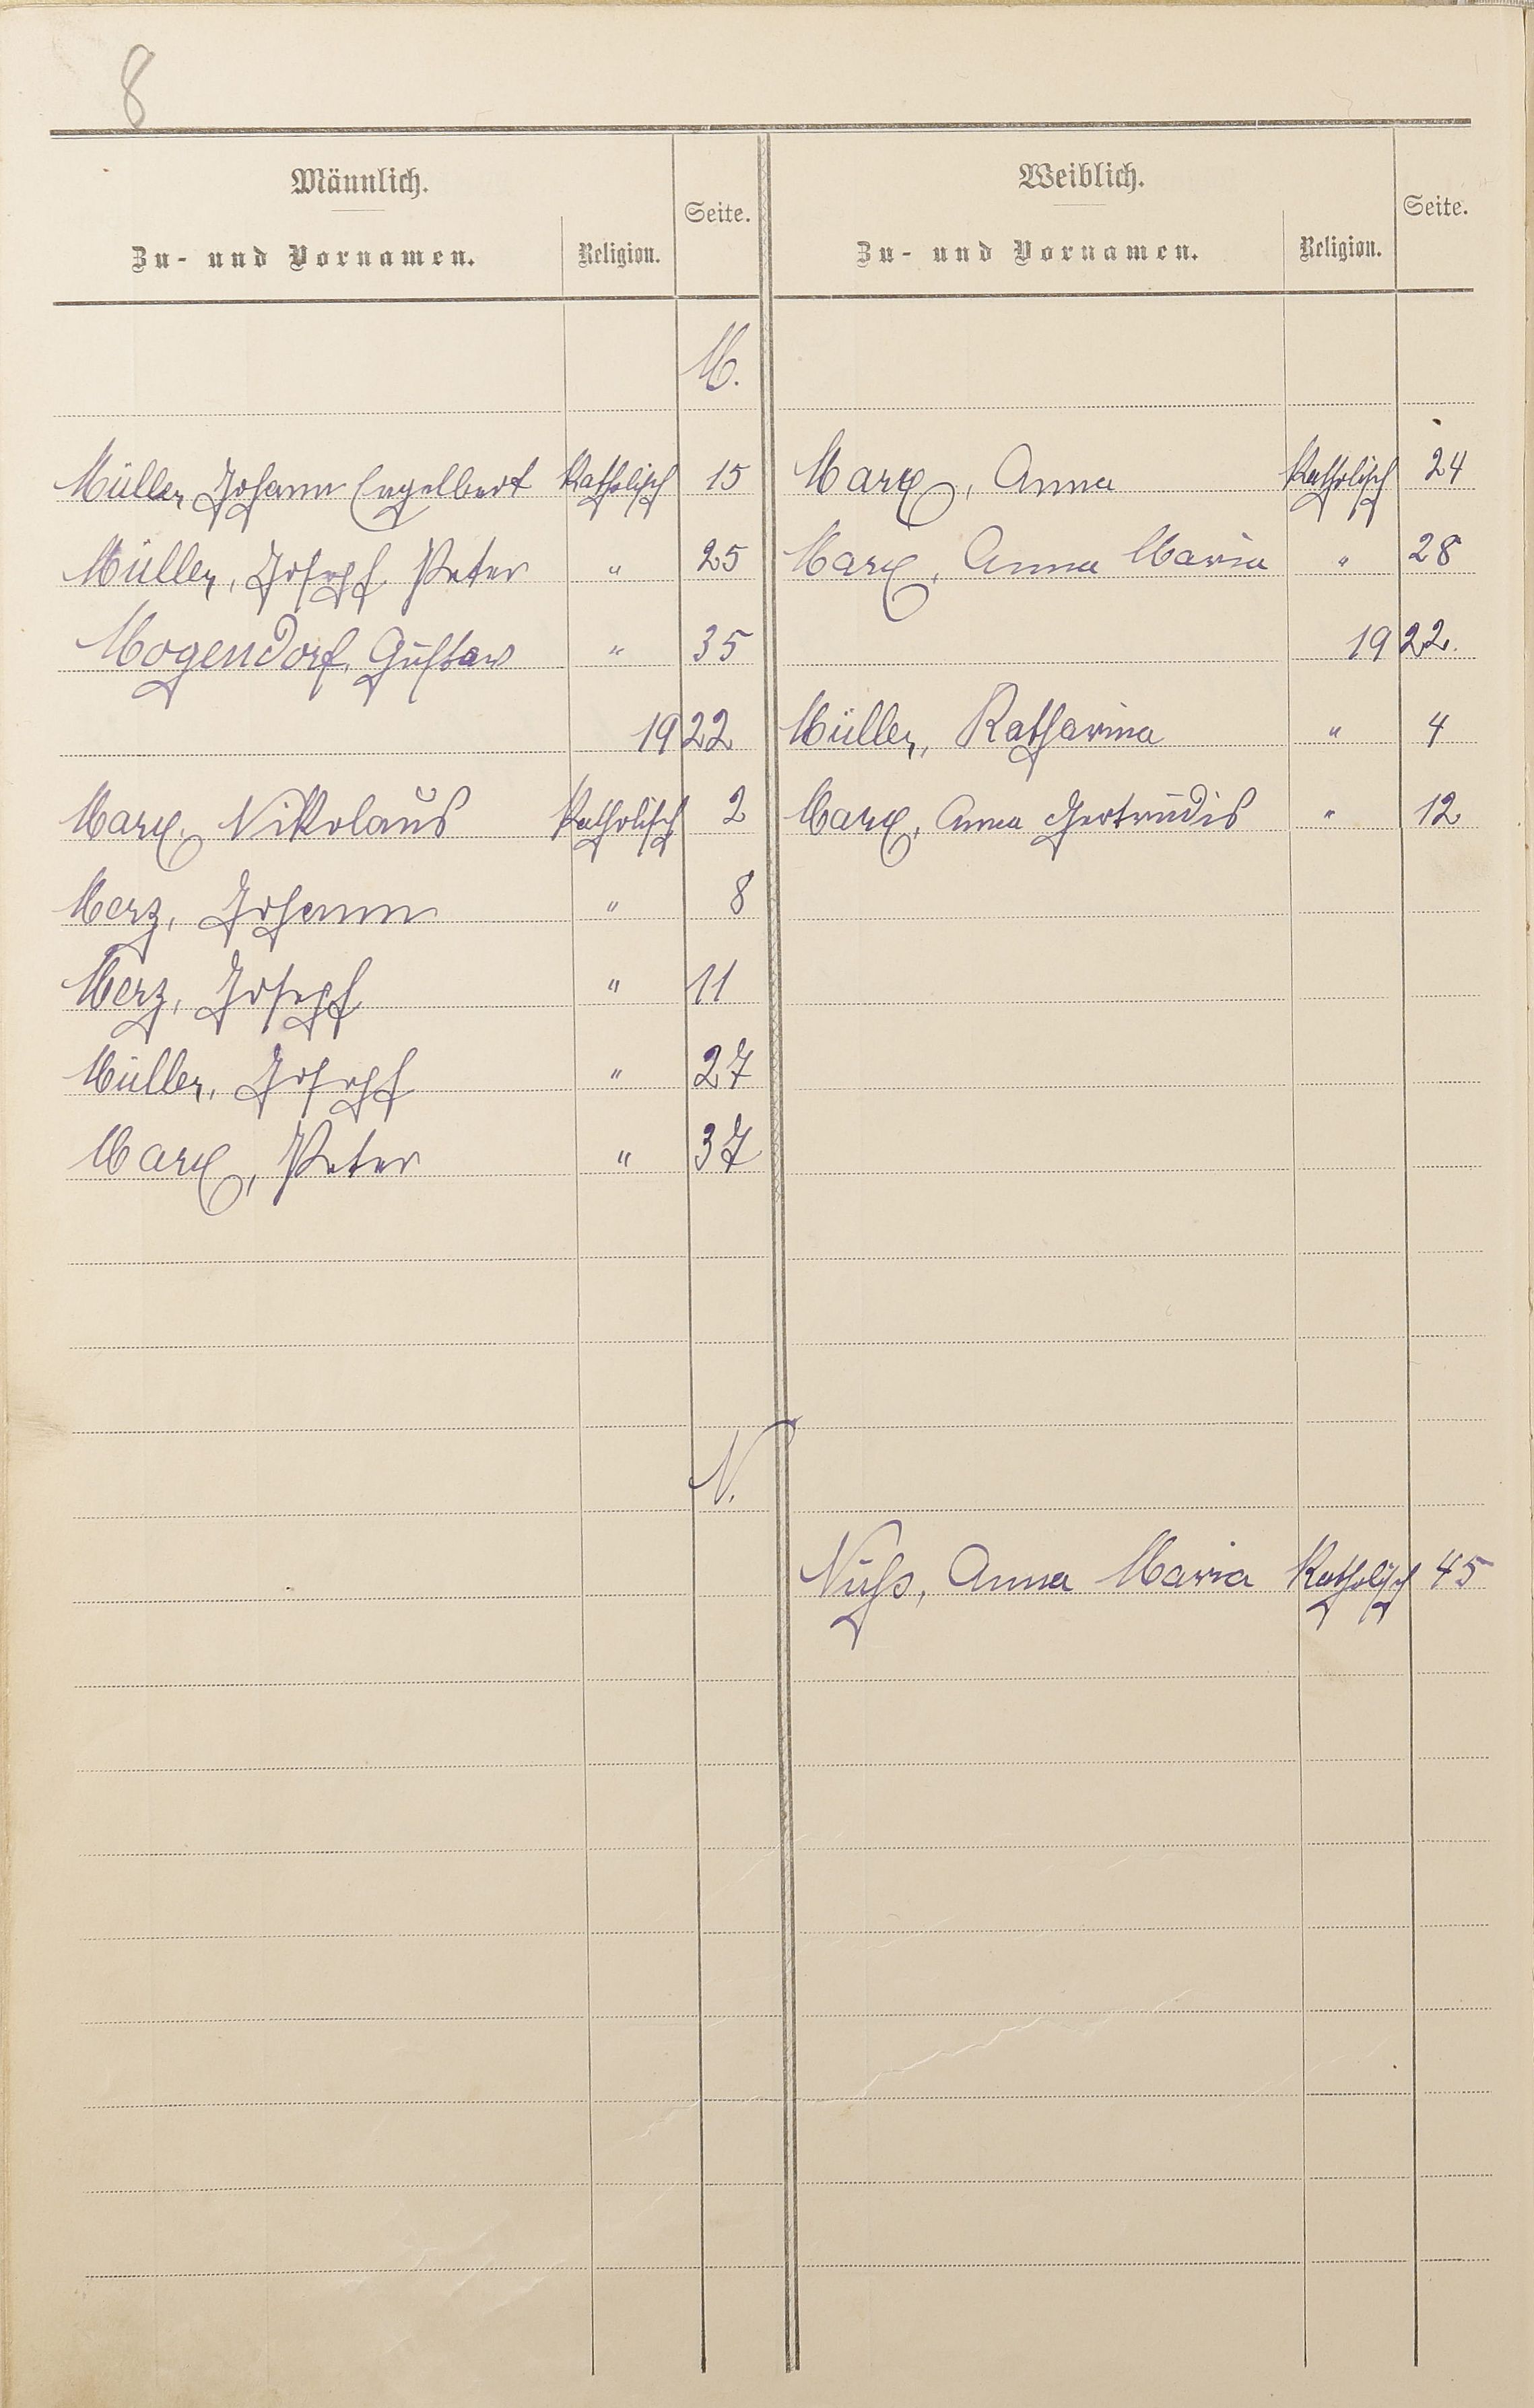 8
Männlich. Seite. Weiblich. Seite.
Zu- und Vornamen. Religion. Zu- und Vornamen. Religion.
M.
Müller, Johann Engelbert Katholisch 15 Marx, Anna Katholisch 24
Müller, Joseph Peter " 25 Marx, Anna Maria " 28
Mogendorf, Gustav " 35 1922.
1922 Müller, Katharina " 4
Marx, Nikolaus Katholisch 2 Marx, Anna Gertrudis " 12
Merz, Johann " 8
Merz, Joseph " 11
Müller, Joseph " 27
Marx, Peter " 37
N.
Nuhs, Anna Maria Katholisch 45